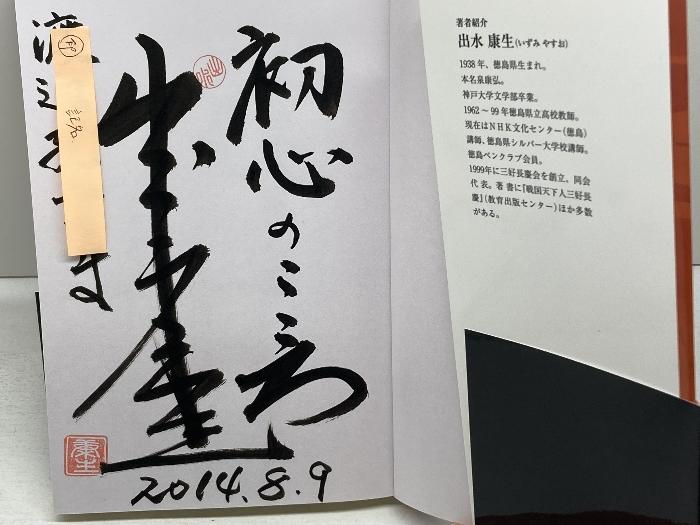 著者紹介
出水 康生(いずみ やすお)
1938年、徳島県生まれ。
本名泉康弘。
神戸大学文学部卒業。
1962～99年徳島県立高校教師。
現在はNHK文化センター(徳島)
講師、徳島県シルバー大学校講師。
徳島ペンクラブ会員。
1999年に三好長慶会を創立。同会
代表。著書に『戦国天下人三好長
慶』(教育出版センター)ほか多数
がある。
初心の
出水康生
2014.8.9
康生
㊞
記名